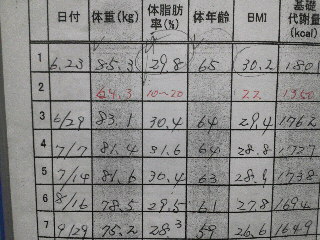 日付 体重(kg) 体脂肪率(%) 体年齢 BMI 基礎代謝量(kcal)
1 6.23 85.3 29.8 65 30.2 180
2 64.3 10~20 22 1350
3 6/29 83.1 30.4 64 29.4 1762
4 7/7 81.4 31.6 64 28.8 1727
5 7/14 81.6 30.4 63 28.9 1738
6 8/16 78.5 29.5 61 27.8 1694
7 9/29 75.2 28.3 59 26.6 1649